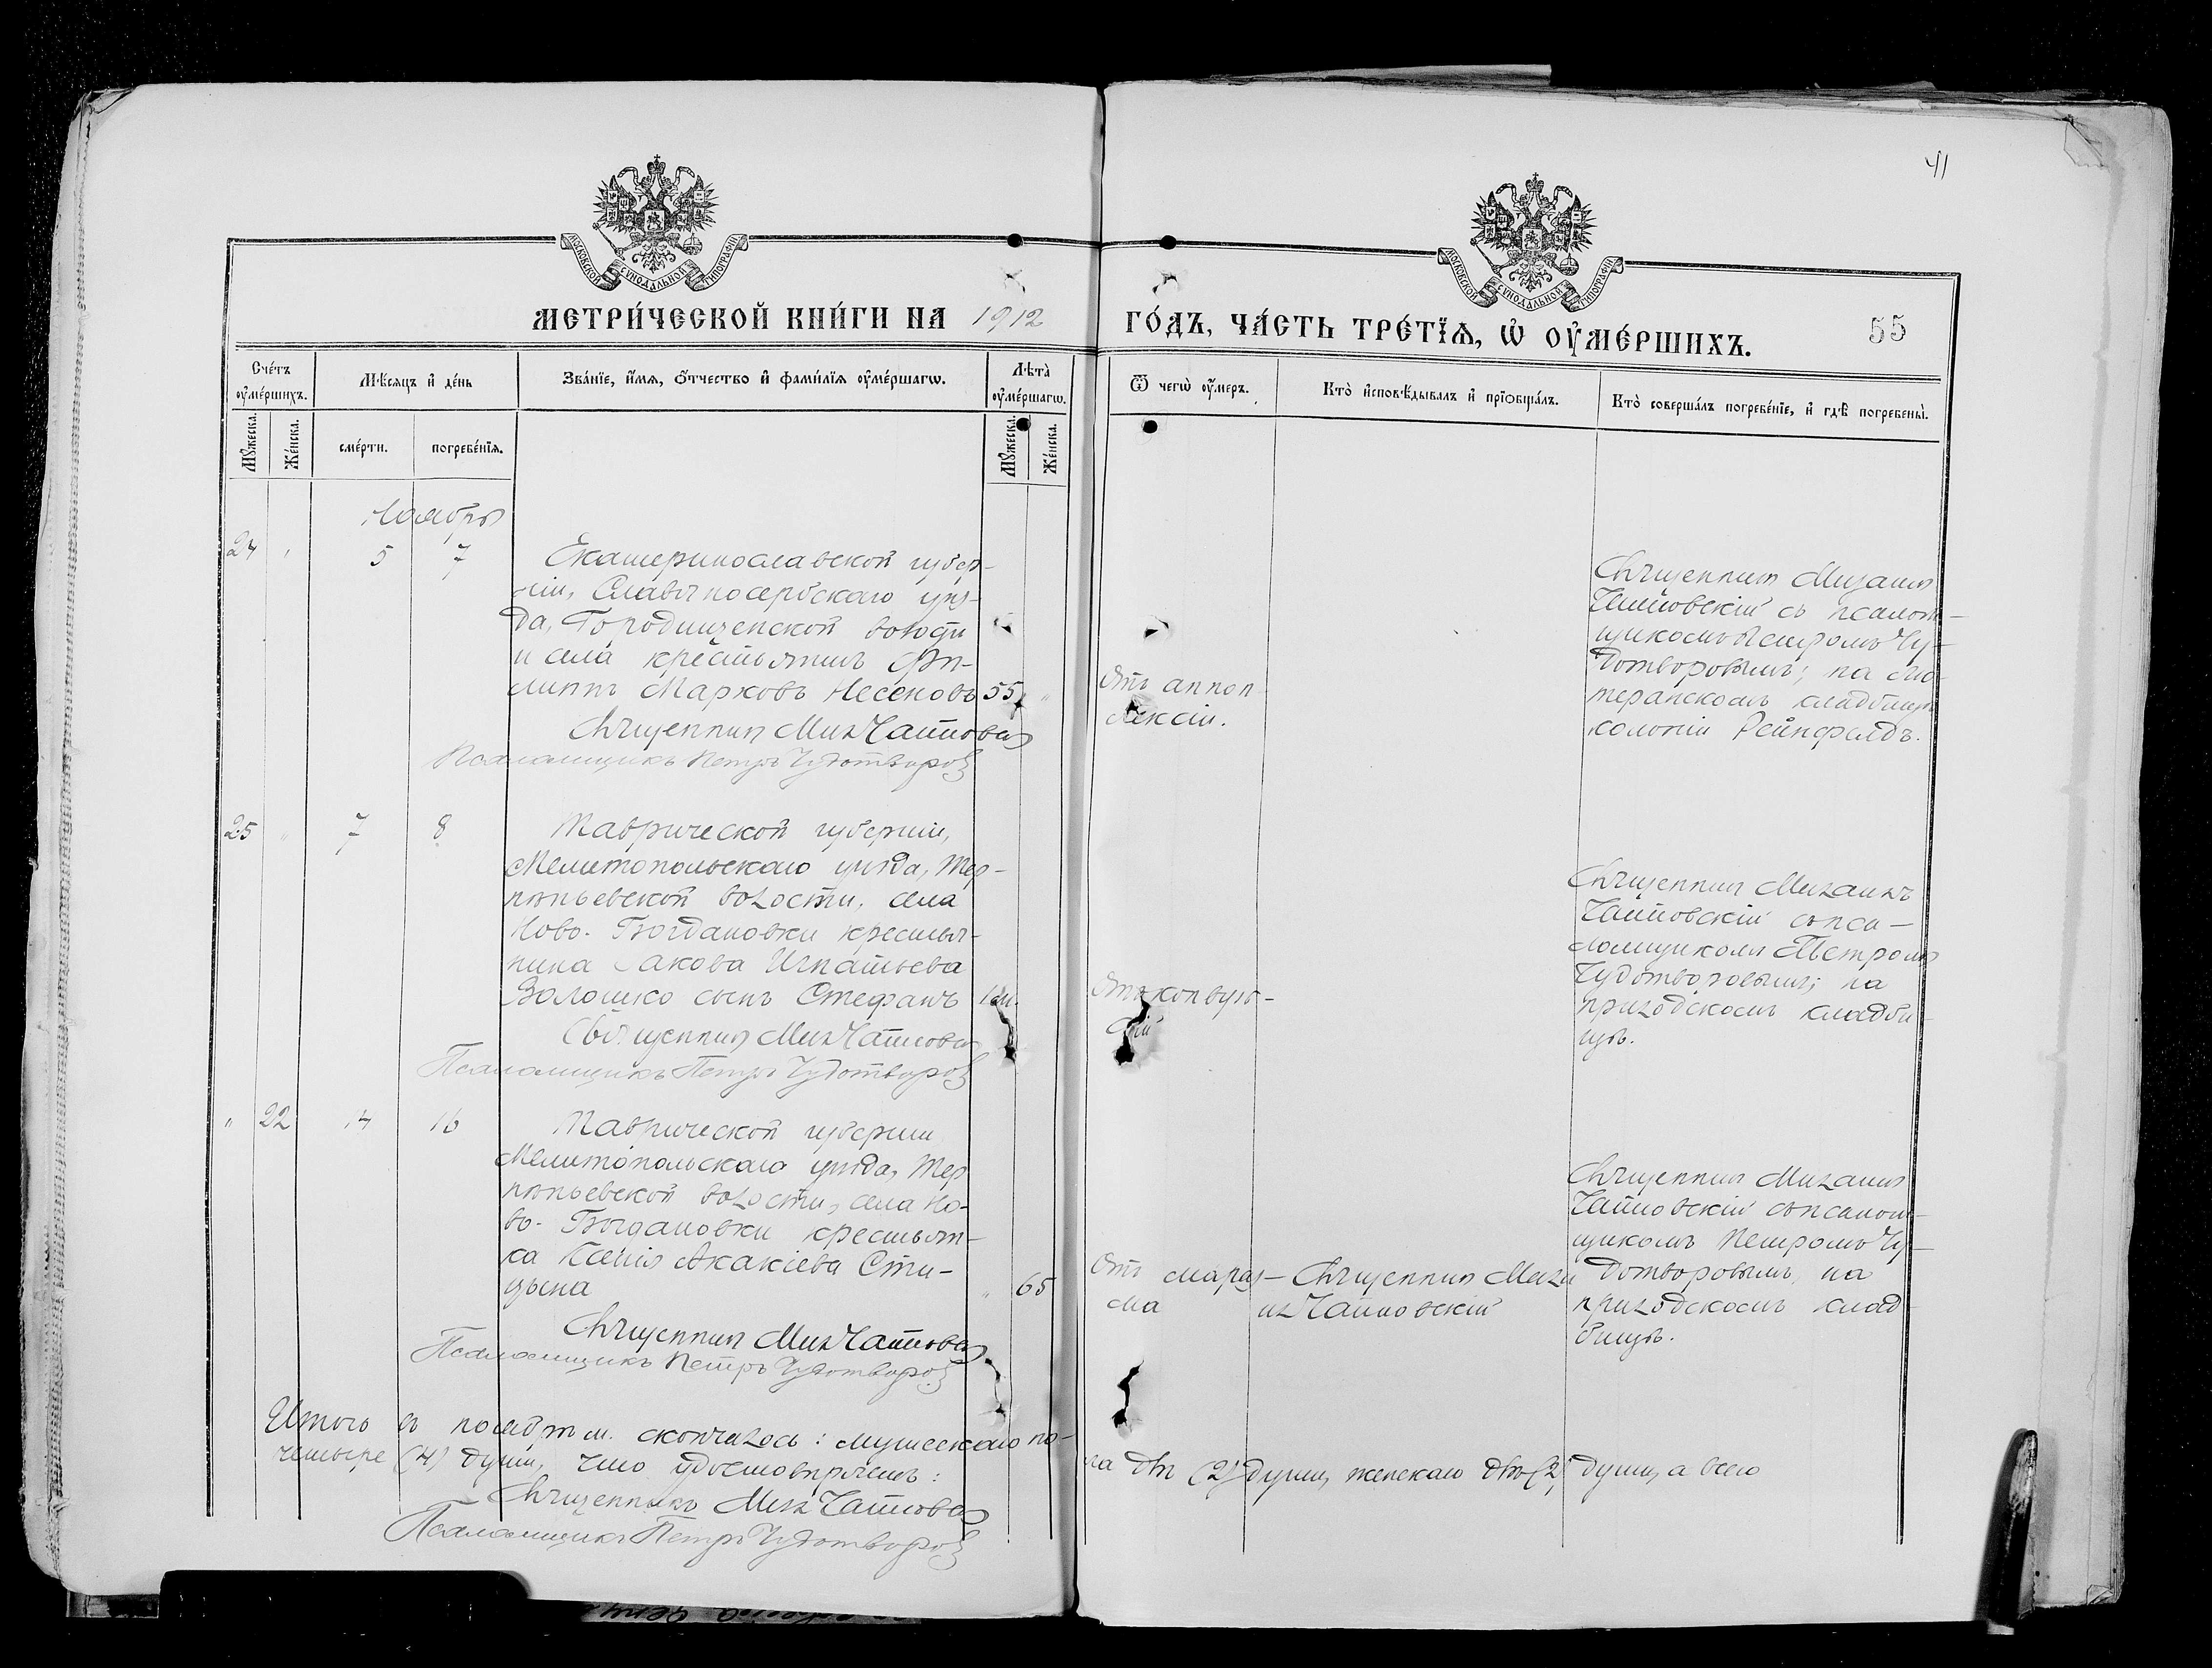 41
МОСКОВСКОЙ СѴНОДАЛЬНОЙ ТИПОГРАФІИ
МОСКОВСКОЙ СѴНОДАЛЬНОЙ ТИПОГРАФІИ
МЕТРИ́ЧЕСКОЙ КНИ́ГИ НА 1912 ГО́ДЪ, ЧА́СТЬ ТРЕ́ТЇѦ, Ѡ҆ ОУ҆МЕ́РШИХЪ. 55
Сче́тъ оу҆ме́ршихъ.
Мѣ́сяцъ и҆ де́нь
Зва́нїе, и҆́мѧ, ѻ҆́тчество и҆ фами́лїѧ оу҆ме́ршагѡ.
Лѣ́та̀ оу҆ме́ршагѡ.
Ѿ чегѡ̀ оу҆́меръ.
Кто̀ и҆сповѣ́дывалъ и҆ прїѡбща́лъ.
Кто̀ соверша́лъ погребе́нїе, и҆ гдѣ̀ погребены̀.
Мꙋ́жеска.
Же́нска.
сме́рти.
погребе́нїѧ.
Мꙋ́жеска.
Же́нска.
Ноябрь
24 " 5 7
Екатеринославской губер-
ніи, Славяносербскаго уѣз-
да, Городищенской волости
и села крестьянинъ Фи-
липпъ Марковъ Несеновъ 55 "
Священникъ Мих Чайков
Псаломщикъ Петръ Чудотворов
Отъ аппоп-
лексіи.
Священникъ Михаилъ
Чайковскій съ псалом-
щикомъ Петромъ Чу-
дотворовымъ; на лю-
теранскомъ кладбищѣ
колоніи Рейнфельдъ.
25 " 7 8
Таврической губерніи,
Мелитопольскаго уѣзда, Тер-
пѣньевской волости, села
Ново-Богдановки крестья-
нина Іакова Игнатьева
Волошко сынъ Стефанъ 1 м.
Священникъ Мих Чайков
Псаломщикъ Петръ Чудотворов
Отъ конвуль-
сій
Священникъ Михаилъ
Чайковскій съ пса-
ломщикомъ Петромъ
Чудотворовымъ; на
приходскомъ кладби-
щѣ.
" 22 14 16
Таврической губерніи
Мелитопольскаго уѣзда, Тер
пѣньевской волости, села Но-
во-Богдановки крестьян-
ка Ксенія Акакіева
" 65
Священникъ Мих Чайков
Псаломщикъ Петръ Чудотворов
Отъ мараз-
ма
Священникъ Миха
илъ Чайковскій
Священникъ Михаилъ
Чайковскій съ псалом-
щикомъ Петромъ Чу-
дотворовымъ, на
приходскомъ клад
бищѣ.
Итого въ ноябрѣ м. скончалось: мужескаго по-
ла двѣ (2) души, женскаго двѣ (2) души, а всего
четыре (4) души, что удостовѣряемъ:
Священникъ Мих Чайков
Псаломщикъ Петръ Чудотворов